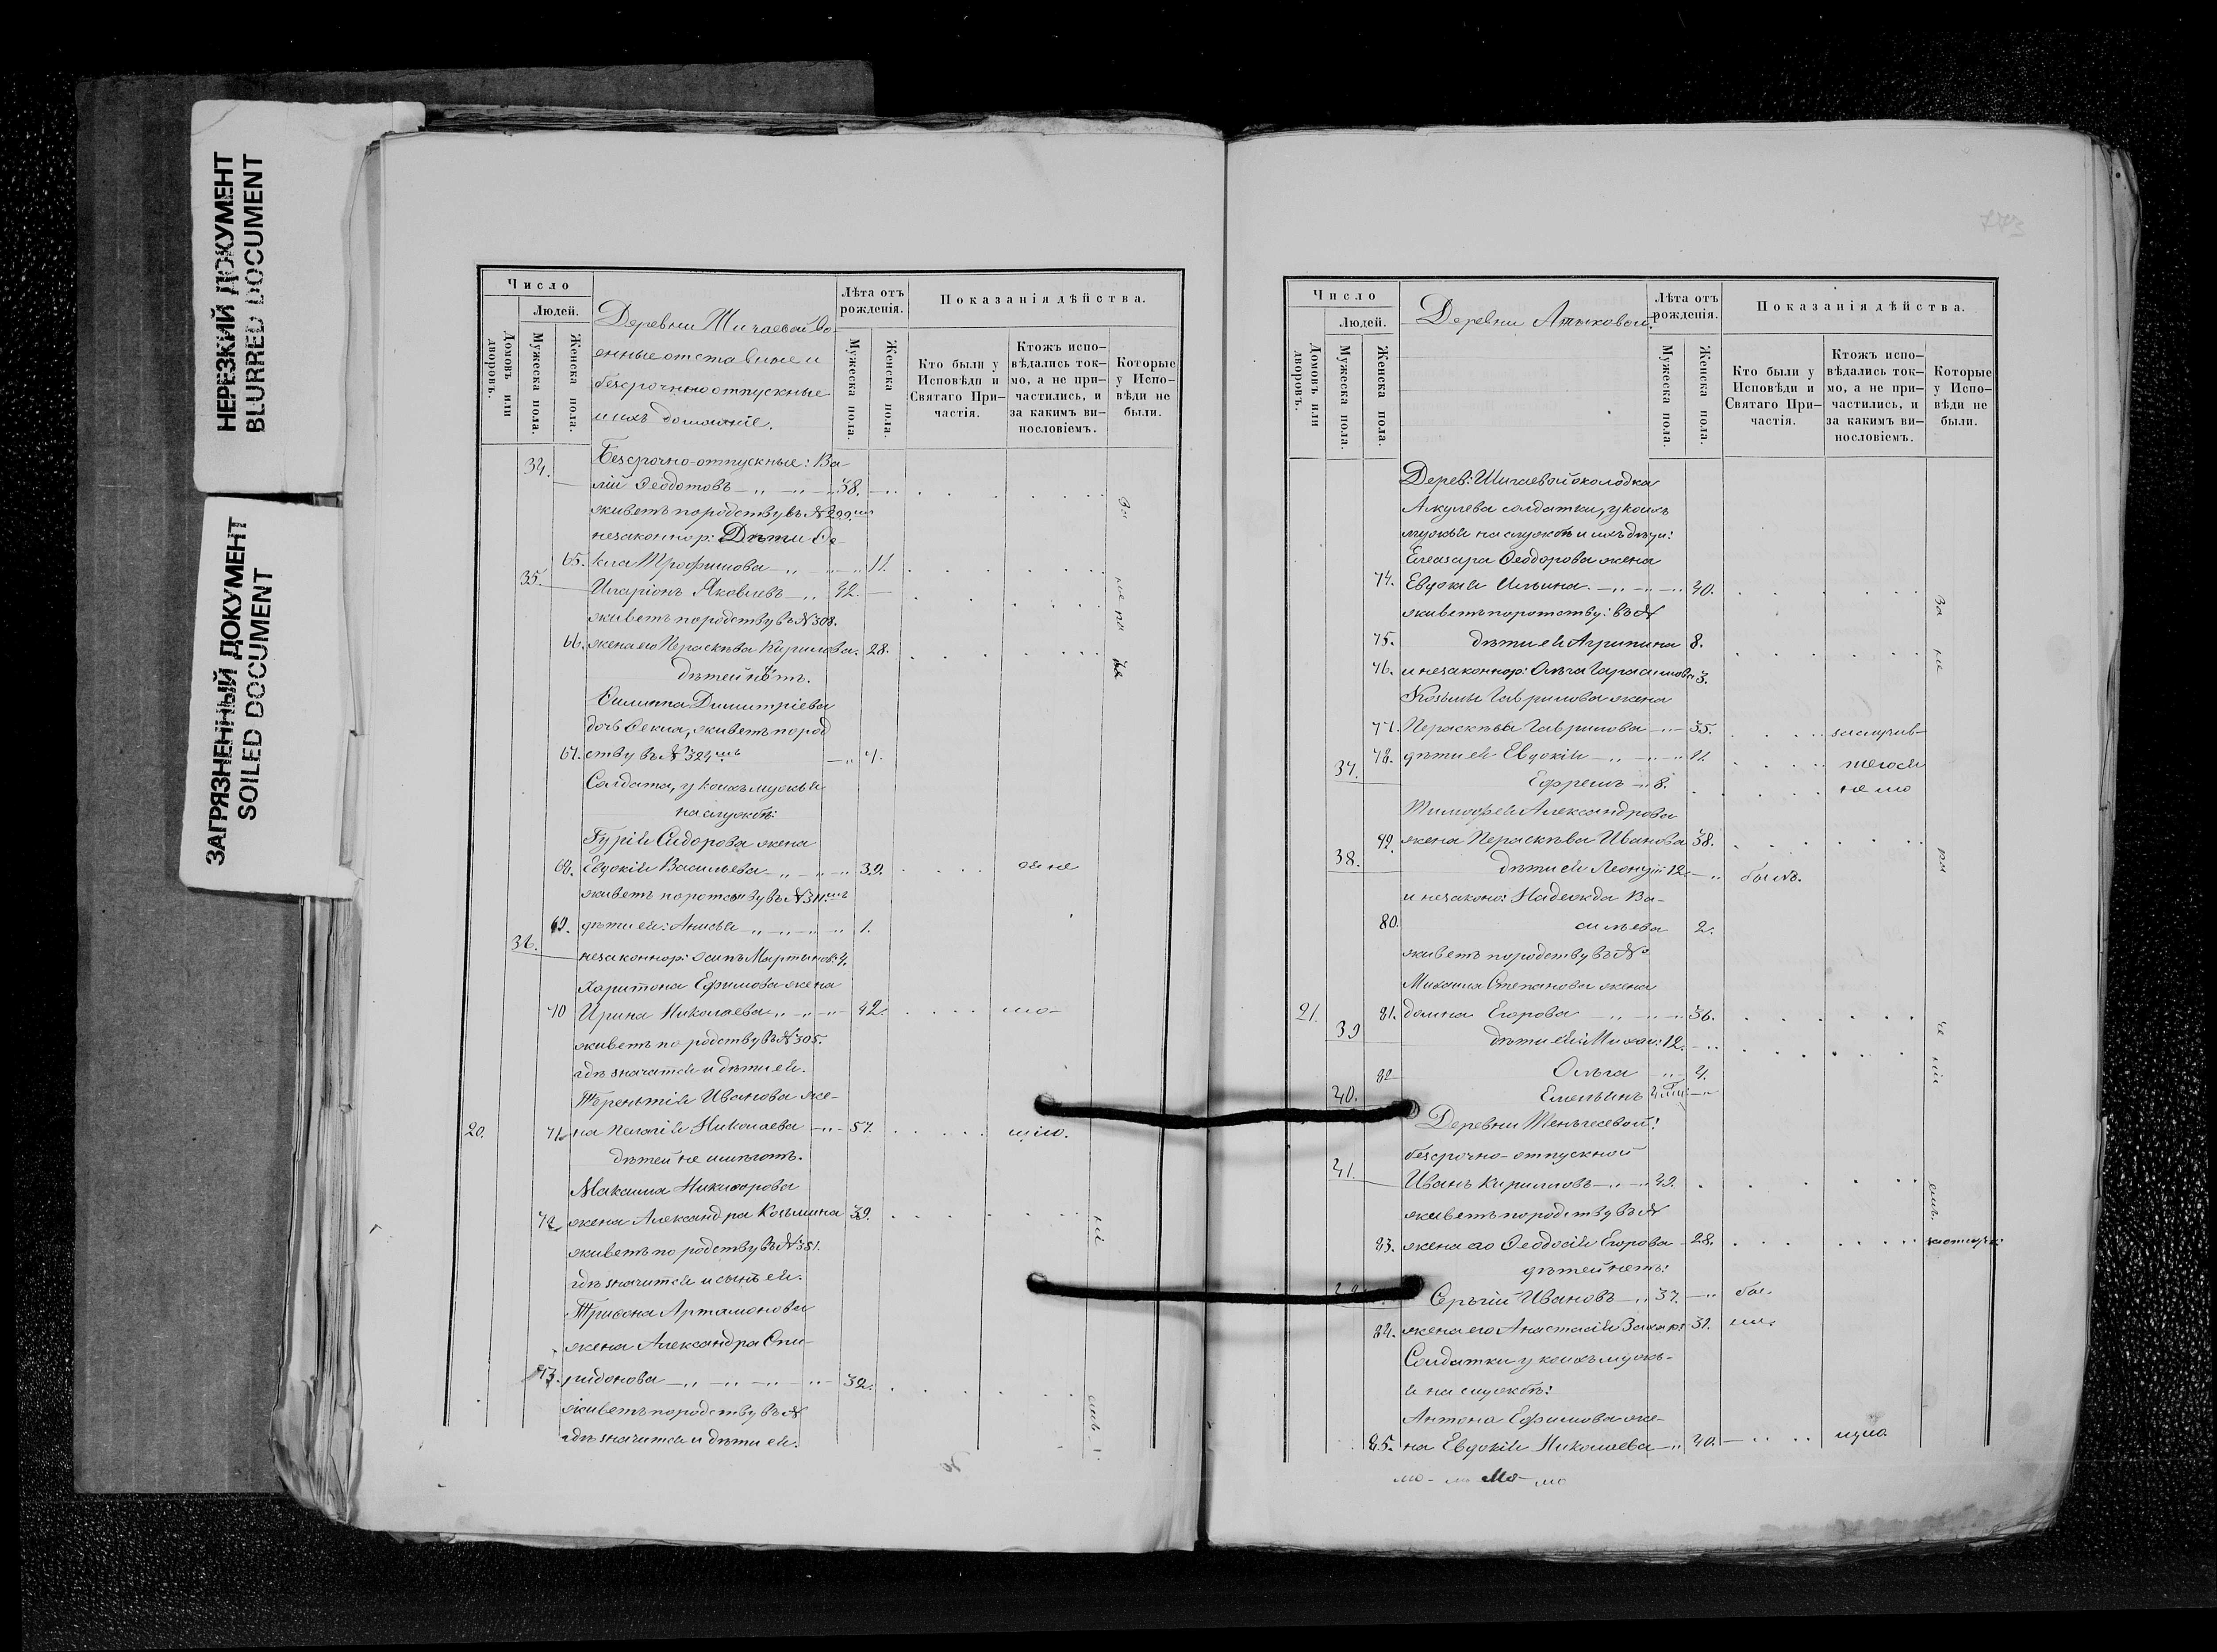 НЕРЕЗКИЙ ДОКУМЕНТ
BLURRED DOCUMENT
ЗАГРЯЗНЕННЫЙ ДОКУМЕНТ
SOILED DOCUMENT
Число
Людей.
Домовъ или дворовъ.
Мужеска пола.
Женска пола.
Деревни Шигаевой во-
енные отставные и
безсрочно отпускные
и ихъ домашніе.
Лѣта отъ рожденія.
Мужеска пола.
Женска пола.
Показанія дѣйства.
Кто были у Исповѣди и Святаго При-частія.
Ктожъ испо-вѣдались ток-мо, а не при-частились, и за какимъ ви-нословіемъ.
Которые у Испо-вѣди не были.
34. Безсрочно-отпускные: Ва-
Ѳеодотовъ 38.
живетъ по родству въ № 299.
незаконнор: Дѣти Ѳе-
65. кла Трофимова 11.
35. Иларіонъ Яковлевъ 42.
живетъ по родству въ № 308.
66. жена его Параскѣва Кирилова. 28.
дѣтей нѣтъ.
Димитріева
дочь Ѳекла, живетъ по род
67. ству въ № 324
у коихъ мужья
на службѣ:
Гурія Сидорова жена
68. Евдокія Васильева 39.
живетъ по родству въ № 311.
69. дѣти ея: Анисья 1.
36. незаконнор: Осипъ Мартынов: 4.
Харитона Ефимова жена
70 Ирина Николаева 42.
живетъ по родству въ № 305.
гдѣ значатся и дѣти ея.
Терентія Иванова же-
20. 71. на Пелагія Николаева 57.
дѣтей не имѣютъ.
Никифорова
72. жена Александра Козьмина 39.
живетъ по родству въ № 381.
гдѣ значится и сынъ ея.
Трифона Артамонова
жена Александра Спи-
73. ридонова 32.
живетъ по родству въ №
гдѣ значатся и дѣти ея.
773
Число
Людей.
Домовъ или дворовъ.
Мужеска пола.
Женска пола.
Деревни
Лѣта отъ рожденія.
Мужеска пола.
Женска пола.
Показанія дѣйства.
Кто были у Исповѣди и Святаго При-частія.
Ктожъ испо-вѣдались ток-мо, а не при-частились, и за какимъ ви-нословіемъ.
Которые у Испо-вѣди не были.
Дерев: Шигаевой околодка
Акулева солдатки, у коихъ
мужья на службѣ и ихъ дѣти:
Елеазара Ѳеодорова жена
74. Евдокія Ильина 40.
живетъ по родству: въ №
75. дѣти ея Агрипина 8.
76. и незаконнор: Ольга Гарасимова 3.
Козьмы Гаврилова жена
77. Параскѣва Гаврилова 35.
78. дѣти ея Евдокія 11.
37. Ефремъ 8.
Тимофея Александрова
79. жена Параскѣва Иванова 38.
38. дѣти ея 12. былъ.
и незакон: Надежда Ва-
80. сильева 2.
живетъ по родству въ №
Михаила Степанова жена
21. 81. Домна Егорова 36.
39 дѣти ея: Михаи: 12.
82 Ольга 4.
40. Емельянъ
Деревни
безсрочно-отпускной
41. Иванъ Кириловъ 49.
живетъ по родству въ №
83. жена его Ѳеодосія Егорова 28.
дѣтей нетъ:
Сергій Ивановъ 37. бы-
84. жена его Анастасія Захар: 31. ли.
Солдатки у коихъ мужь-
я на службѣ:
Антона Ефимова же-
85. на Евдокія Николаева 40.